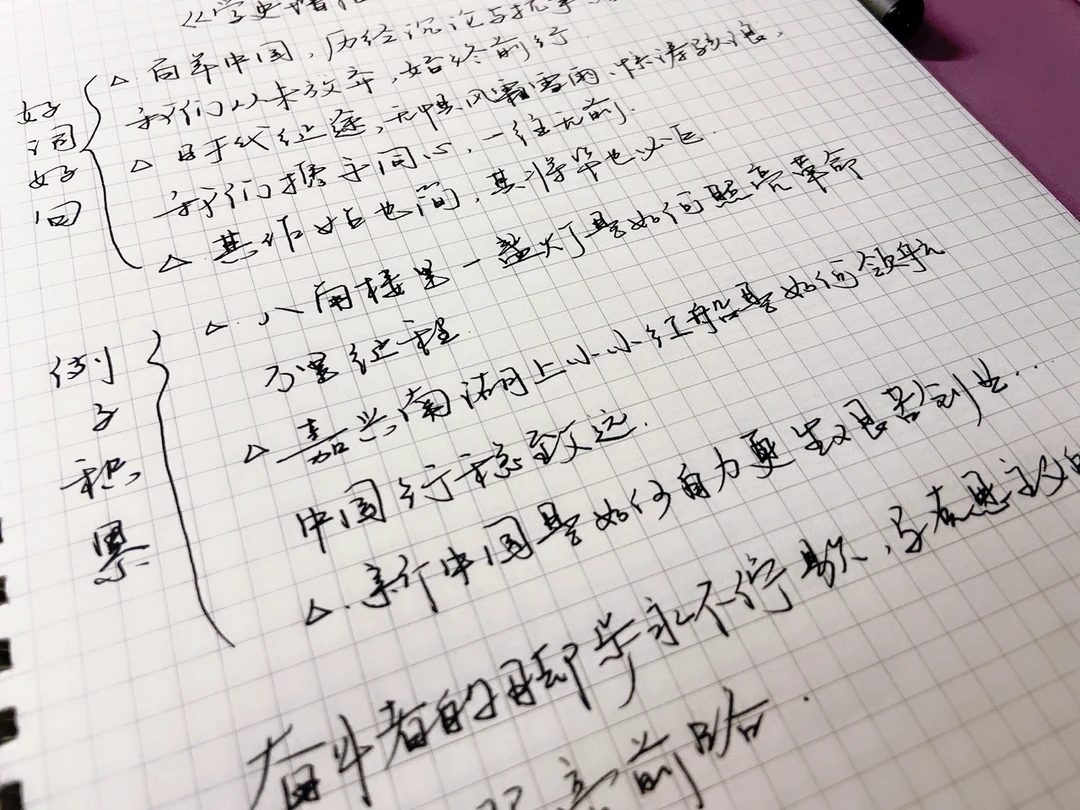 《学史
好词好句
△ 百年中国，历经沉沦与抗争
我们从未放弃，始终前行.
△ 日月长征途，无惧风霜雪雨、惊涛骇浪，
我们携手同心，一往无前.
△ 其作始也简，其将毕也必巨.
例子积累
△. 八角楼里一盏灯是如何照亮革命
万里征程.
△ 嘉兴南湖上小小红船是如何领航
中国行稳致远.
△. 新中国是如何自力更生艰苦创业...
奋斗者的脚步永不停歇，
前路.